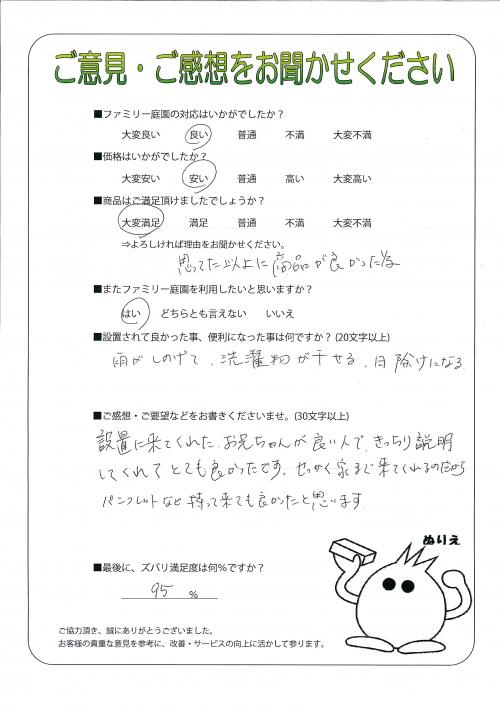 ご意見・ご感想をお聞かせください
■ファミリー庭園の対応はいかがでしたか？
大変良い 良い 普通 不満 大変不満
■価格はいかがでしたか？
大変安い 安い 普通 高い 大変高い
■商品はご満足頂けましたでしょうか？
大変満足 満足 普通 不満 大変不満
⇒よろしければ理由をお聞かせください。
思ってた以上に商品が良かった為
■またファミリー庭園を利用したいと思いますか？
はい どちらとも言えない いいえ
■設置されて良かった事、便利になった事は何ですか？(20文字以上)
雨がしのげて、洗濯物が干せる、日除けになる
■ご感想・ご要望などをお書きくださいませ。(30文字以上)
設置に来てくれた、お兄ちゃんが良い人で、きっちり説明
してくれてとても良かったです、せっかく家まで来てくれるのだから
パンフレットなど持って来ても良かったと思います
ぬりえ
■最後に、ズバリ満足度は何%ですか？
95 %
ご協力頂き、誠にありがとうございました。
お客様の貴重な意見を参考に、改善・サービスの向上に活かして参ります。